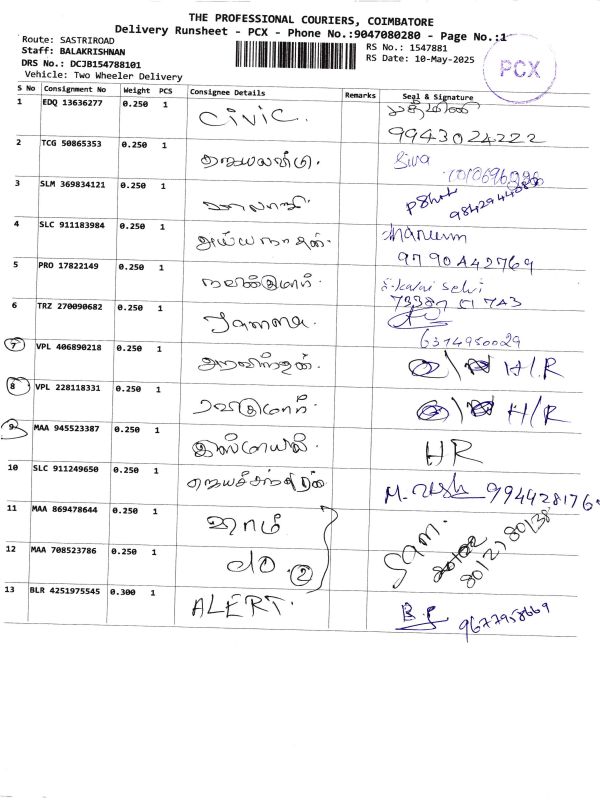 THE PROFESSIONAL COURIERS, COIMBATORE
Delivery Runsheet - PCX - Phone No.:9047080280 - Page No.:1
Route: SASTRIROAD
Staff: BALAKRISHNAN
DRS No.: DCJB154788101
Vehicle: Two Wheeler Delivery
RS No.: 1547881
RS Date: 10-May-2025
PCX
S No Consignment No Weight PCS Consignee Details Remarks Seal & Signature
1 EDQ 13636277 0.250 1 CIVIC.
9943024222
2 TCG 50865353 0.250 1 Siva
3 SLM 369834121 0.250 1 பாலாஜி
4 SLC 911183984 0.250 1 அய்யநாதன்.
9790442769
5 PRO 17822149 0.250 1 நவீன்குமார். Kalai Selvi
6 TRZ 270090682 0.250 1
6374950029
7 VPL 406890218 0.250 1 அரவிந்தன். H/R
8 VPL 228118331 0.250 1 ரவிகுமார். H/R
9 MAA 945523387 0.250 1 இஸ்மாயில். HR
10 SLC 911249650 0.250 1 ஜெயச்சந்திரன் M.
11 MAA 869478644 0.250 1 ஷாம் Sam.
12 MAA 708523786 0.250 1 do. 2
13 BLR 4251975545 0.300 1 ALERT.
9677958669